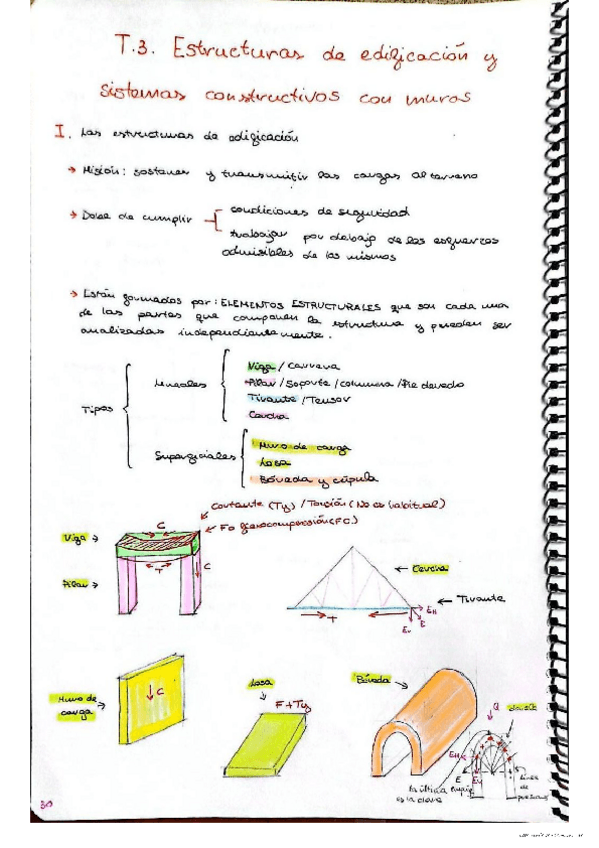 T.3. Estructuras de edificación y
sistemas constructivos con muros
I. Las estructuras de edificación
→ Misión: sostener y transmitir las cargas al terreno
→ Debe de cumplir
condiciones de seguridad
trabajar por debajo de los esfuerzos
admisibles de los mismos
→ Están formados por: ELEMENTOS ESTRUCTURALES que son cada una
de las partes que componen la estructura y pueden ser
analizadas independientemente.
Tipos
Lineales
Viga / Carrera
Pilar / Soporte / columna / Pie derecho
Tirante / Tensor
Cercha
Superficiales
Muro de carga
Losa
Bóveda y cúpula
Cortante (Ty) / Torsión (No es habitual)
Viga →
← Fo flexocompresión (FC)
C
T
C
Pilar →
← Cercha
← Tirante
T
EH
E
Ev
Muro de
carga →
C
Losa
F + Ty
Bóveda
Q
EH
E
Ev
la última
es la clave
línea
de
30